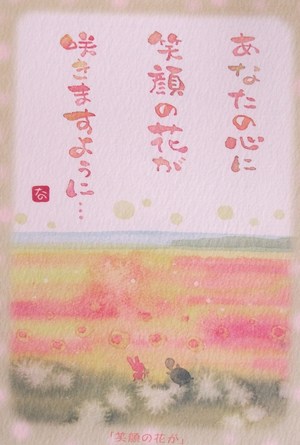 あなたの心に
笑顔の花が
咲きますように…
な
「笑顔の花が」